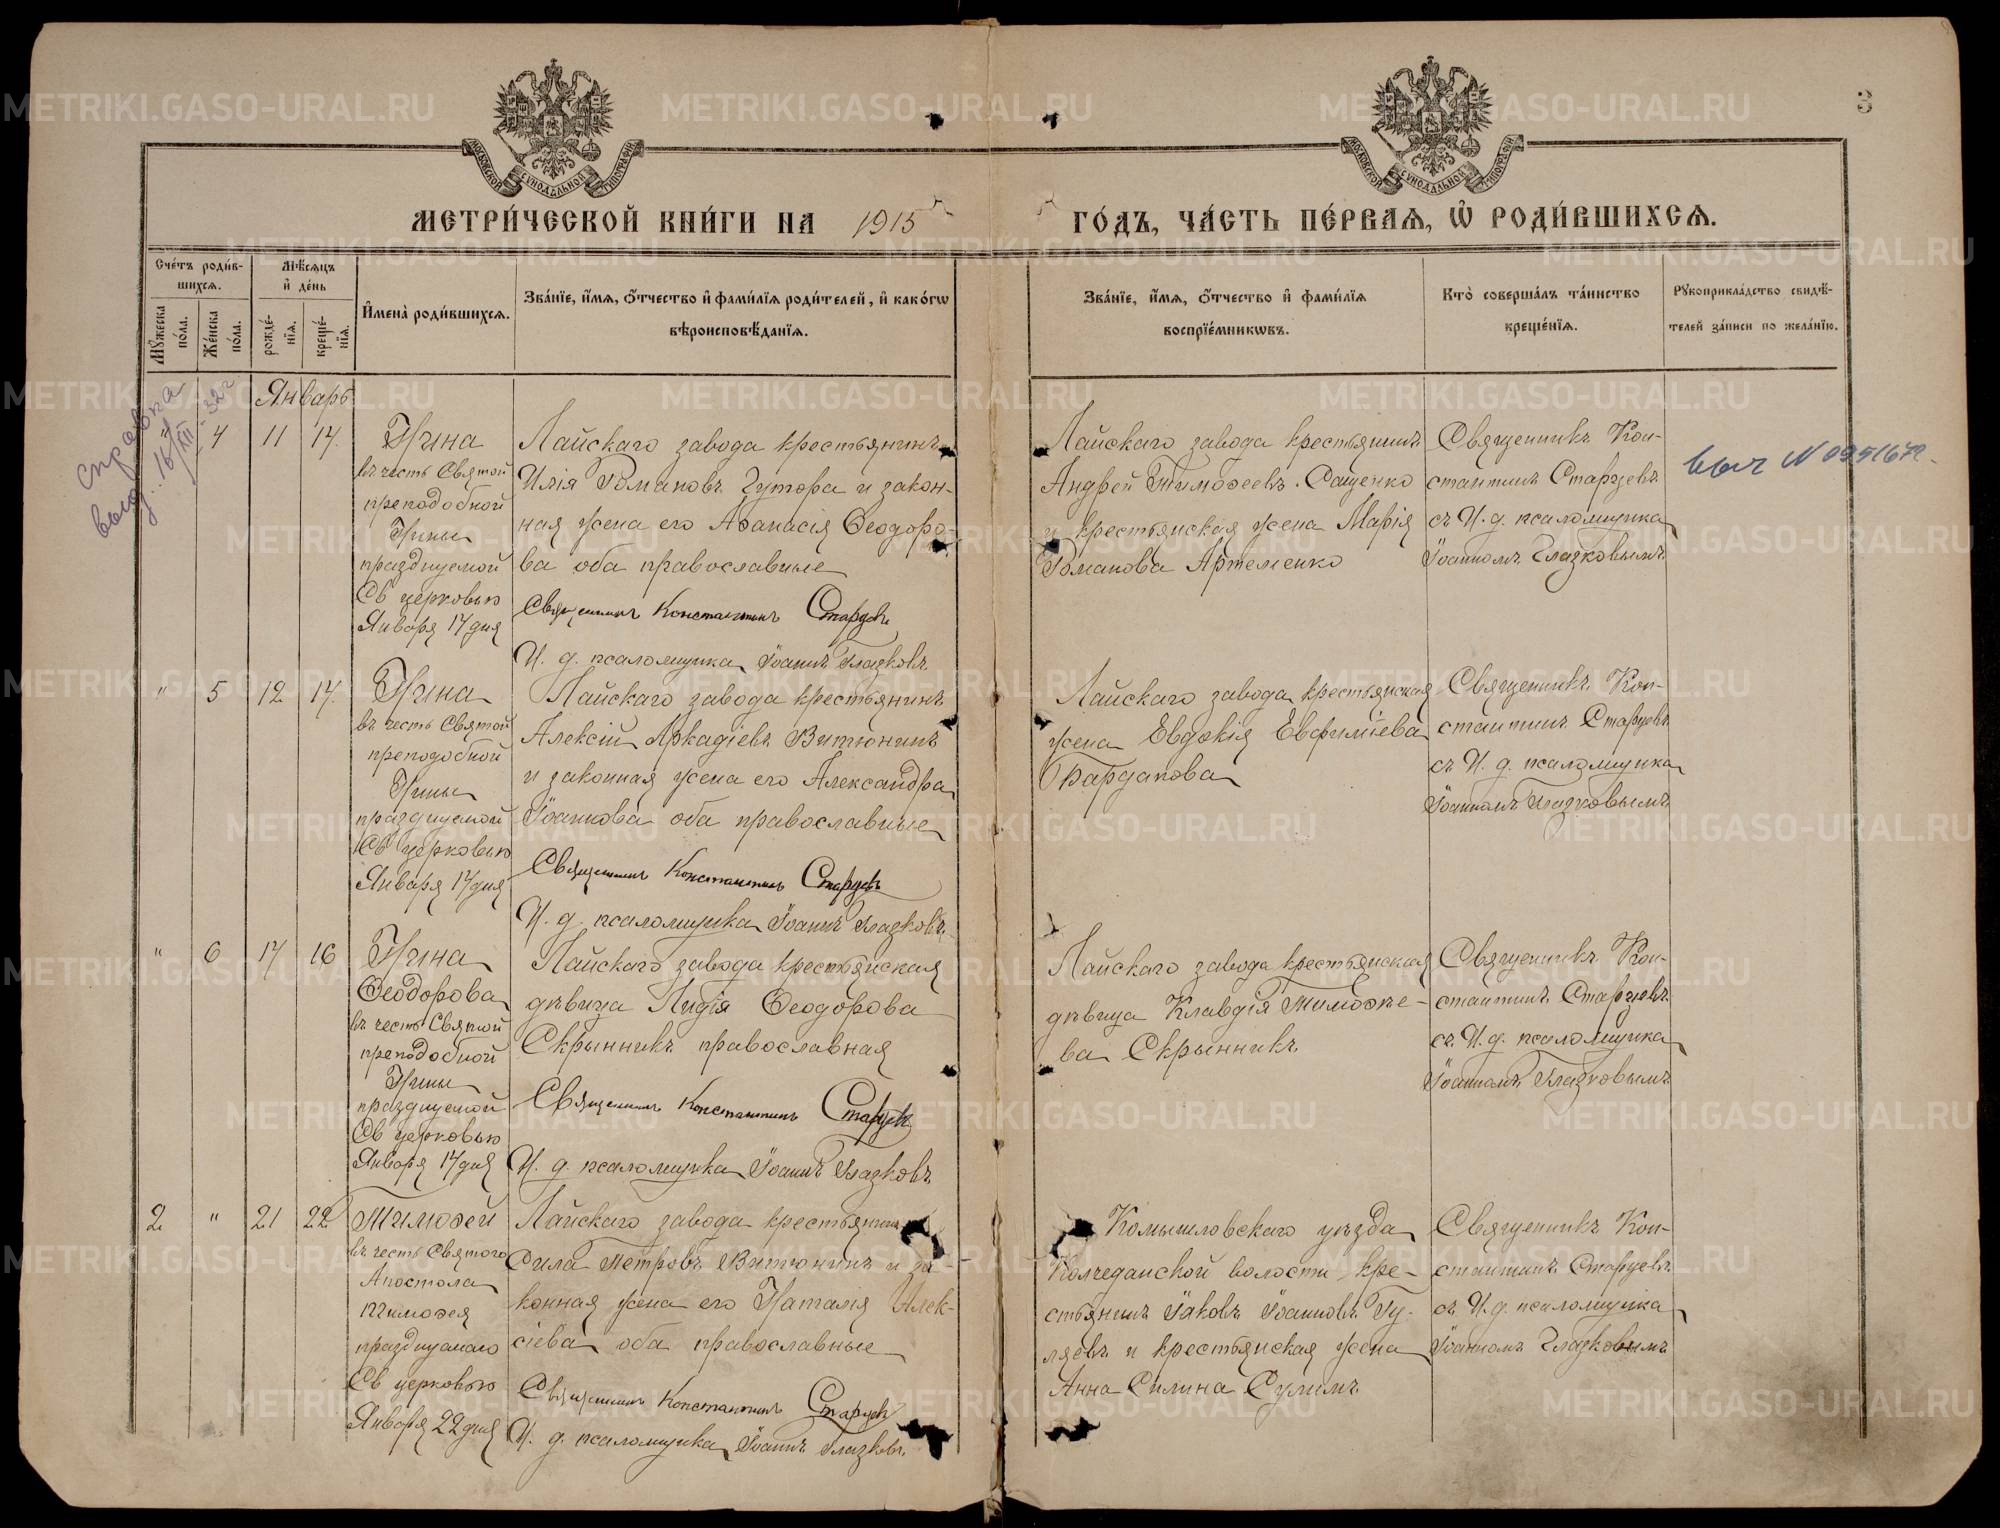 3
МОСКОВСКОЙ СѴНОДАЛЬНОЙ ТИПОГРАФІИ
МОСКОВСКОЙ СѴНОДАЛЬНОЙ ТИПОГРАФІИ
МЕТРИ́ЧЕСКОЙ КНИ́ГИ НА 1915
ГО́ДЪ, ЧА́СТЬ ПЕ́РВАѦ, Ѽ РОДИ́ВШИХСѦ.
Сче́тъ роди́в-
шихсѧ.
Мꙋ́жеска
по́ла.
Же́нска
по́ла.
Мѣ́сѧцъ
и҆ де́нь
рожде́-
нїѧ.
креще́-
нїѧ.
И҆мена̀ роди́вшихсѧ.
Зва́нїе, и҆́мѧ, ѻ҆́тчество и҆ фами́лїѧ роди́телей, и҆ како́гѡ
вѣроисповѣ́данїѧ.
Зва́нїе, и҆́мѧ, ѻ҆́тчество и҆ фами́лїѧ
воспрїе́мникѡвъ.
Кто̀ соверша́лъ та́инство
креще́нїѧ.
Рꙋкоприкла́дство свидѣ́-
телей за́писи по жела́нїю.
Январь
справка
выд. 16/XII-32 г
" 4 11 14.
Нина
въ честь Святой
преподобной
Нины
празднуемой
Св церковью
Января 14 дня
Лайскаго завода крестьянинъ
Илія Романовъ Гутора и закон-
ная жена его Аѳанасія Ѳеодоро-
ва оба православные
Священникъ Константинъ Старцевъ
И. д. псаломщика Іоаннъ Глазковъ
Лайскаго завода крестьянинъ
Андрей Тимоѳеевъ Сащенко
и крестьянская жена Марія
Романова Артеменко
Священникъ Кон-
стантинъ Старцевъ
съ И. д. псаломщика
Іоанномъ Глазковымъ
" 5 12 14.
Нина
въ честь Святой
преподобной
Нины
празднуемой
Св церковью
Января 14 дня
Лайскаго завода крестьянинъ
Алексій Аркадіевъ Витюнинъ
и законная жена его Александра
Іоаннова оба православные
Священникъ Константинъ Старцевъ
И. д. псаломщика Іоаннъ Глазковъ
Лайскаго завода крестьянская
жена Евдокія Евфиміева
Барданова
Священникъ Кон-
стантинъ Старцевъ
съ И. д. псаломщика
Іоанномъ Глазковымъ
" 6 14 16
Нина
Ѳеодорова
въ честь Святой
преподобной
Нины
празднуемой
Св церковью
Января 14 дня
Лайскаго завода крестьянская
дѣвица Лидія Ѳеодорова
Скрынникъ православная
Священникъ Константинъ Старцевъ
И. д. псаломщика Іоаннъ Глазковъ
Лайскаго завода крестьянская
дѣвица Клавдія Тимоѳѣе-
ва Скрынникъ
Священникъ Кон-
стантинъ Старцевъ
съ И. д. псаломщика
Іоанномъ Глазковымъ
2 " 21 22
Тимоѳей
въ честь Святого
Апостола
Тимоѳея
празднуемаго
Св церковью
Января 22 дня
Лайскаго завода крестьянинъ
Сила Петровъ Витюнинъ и за-
конная жена его Наталія Алек-
сіева оба православные
Священникъ Константинъ Старцевъ
И. д. псаломщика Іоаннъ Глазковъ
Комышловскаго уѣзда
Колчеданской волости кре-
стьянинъ Іаковъ Іоанновъ Гу-
ляевъ и крестьянская жена
Анна Силина Сулимъ
Священникъ Кон-
стантинъ Старцевъ
съ И. д. псаломщика
Іоанномъ Глазковымъ
METRIKI.GASO-URAL.RU